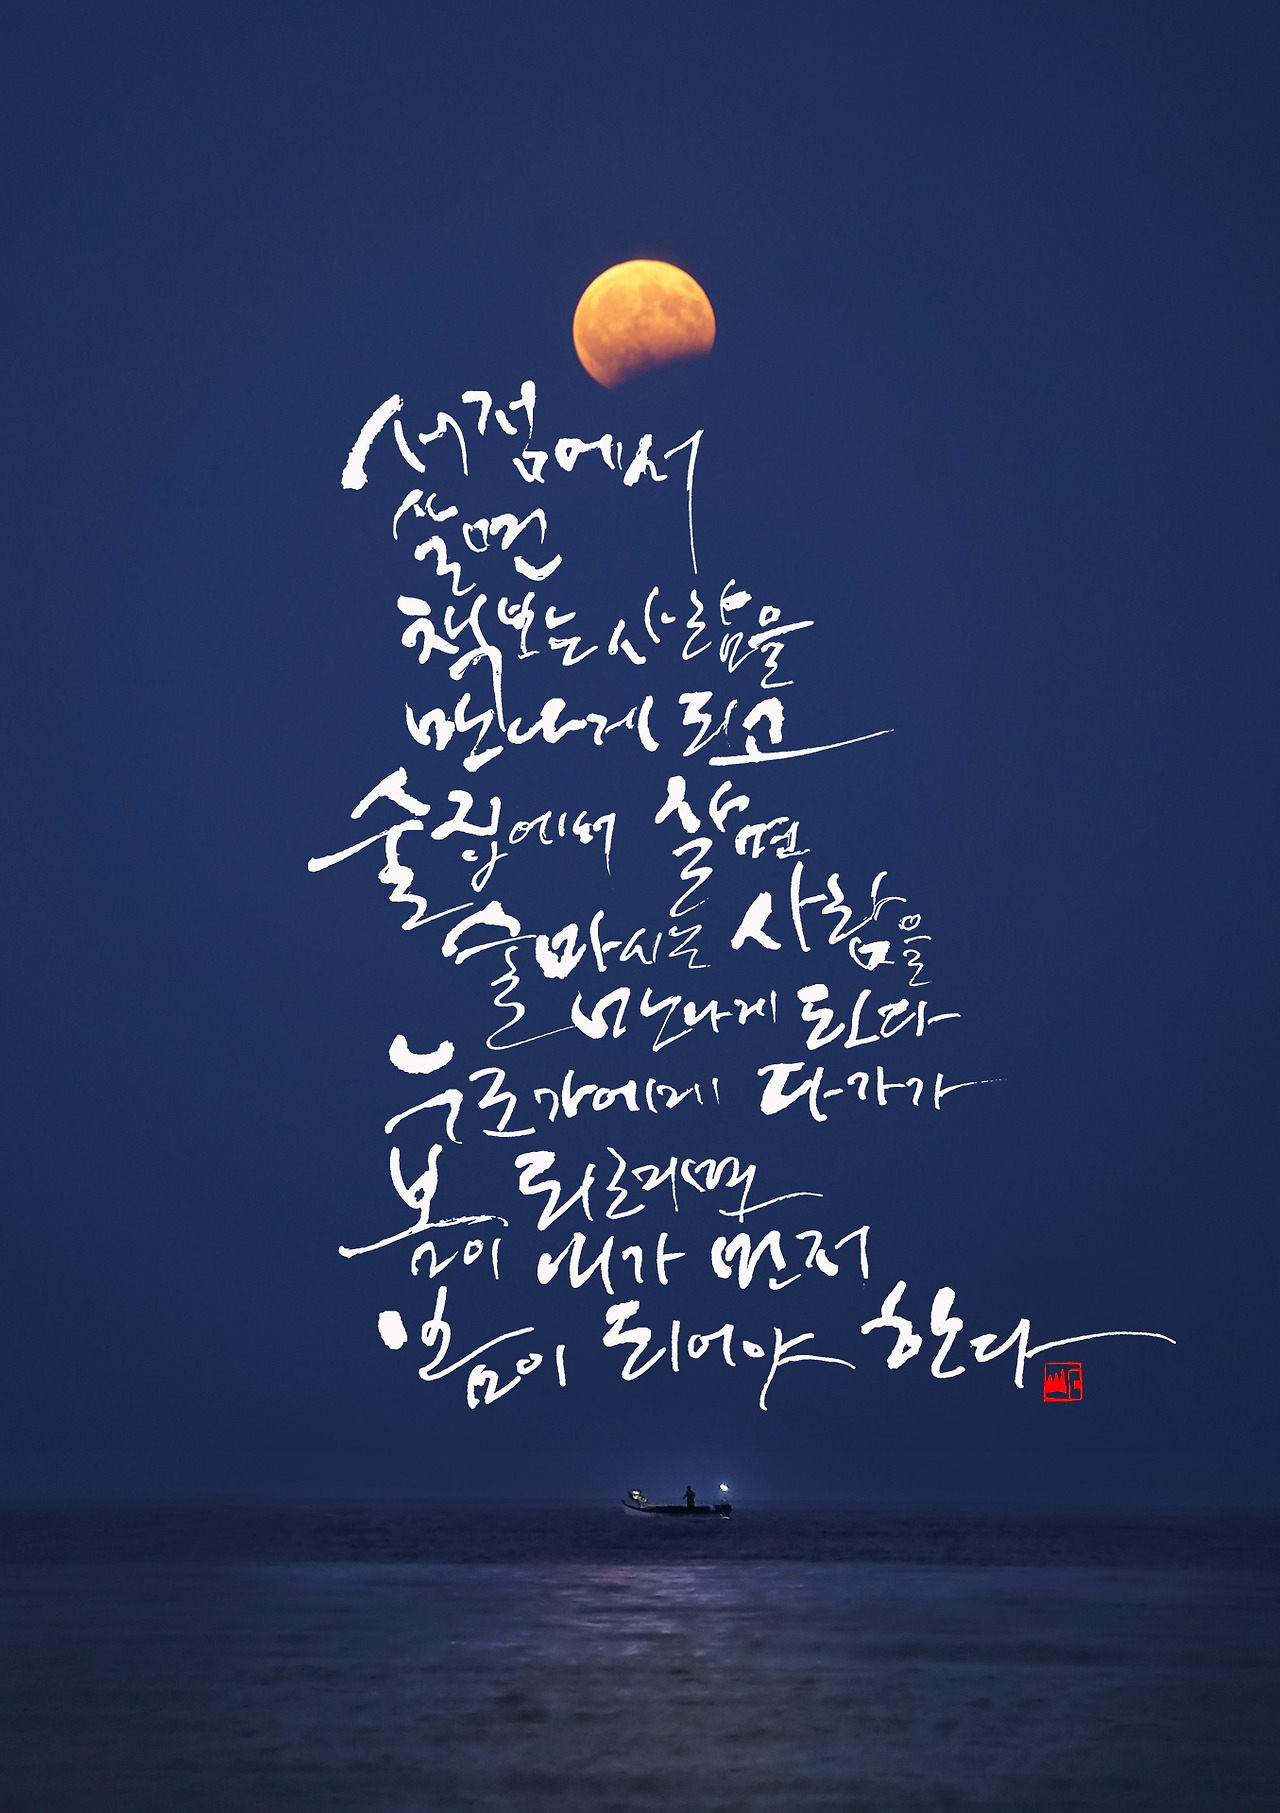 서점에서
살면
책보는 사람을
만나게 되고
술집에서 살면
술마시는 사람을
만나게 된다
누군가에게 다가가
봄이 되려면
내가 먼저
봄이 되어야 한다